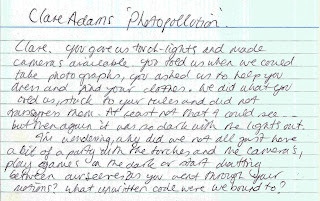 Clare Adams 'Photopollution'.
Clare. You gave us torch-lights and made
camera's available. You told us when we could
take photographs, you asked us to help you
dress and find your clothes. We did what you
told us, stuck to your rules and did not
transgress them. At least not that I could see -
but then again it was so dark with the lights out.
I'm wondering, why did we not all just have
a bit of a party with the torches and the camera's,
play games in the dark or start chatting
between ourselves as you went through your
motions? What unwritten code were we bound to?